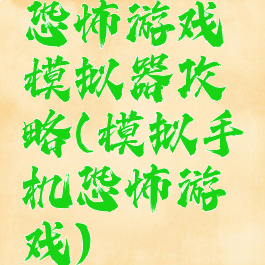 恐怖游戏
模拟器攻
略(模拟手
机恐怖游
戏)